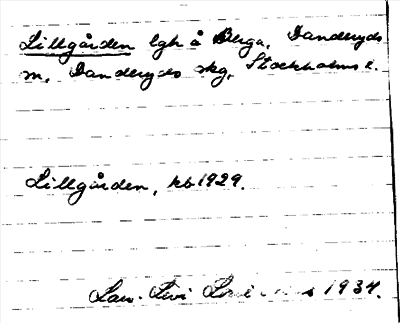 Lillgården lgh å Berga, Danderyds
m, Danderyds skg, Stockholms l.
Lillgården, kb 1929.
1934.